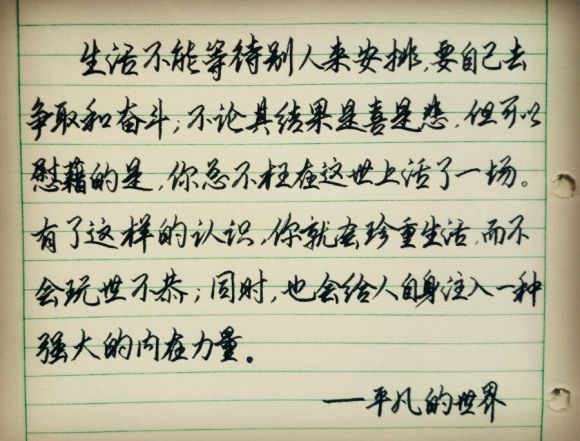 生活不能等待别人来安排，要自己去
争取和奋斗；不论其结果是喜是悲，但可以
慰藉的是，你总不枉在这世上活了一场。
有了这样的认识，你就会珍重生活，而不
会玩世不恭；同时，也会给人自身注入一种
强大的内在力量。
——平凡的世界